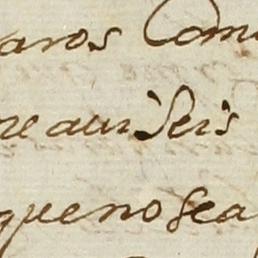 varos Com
ne aur Seis
queno sea